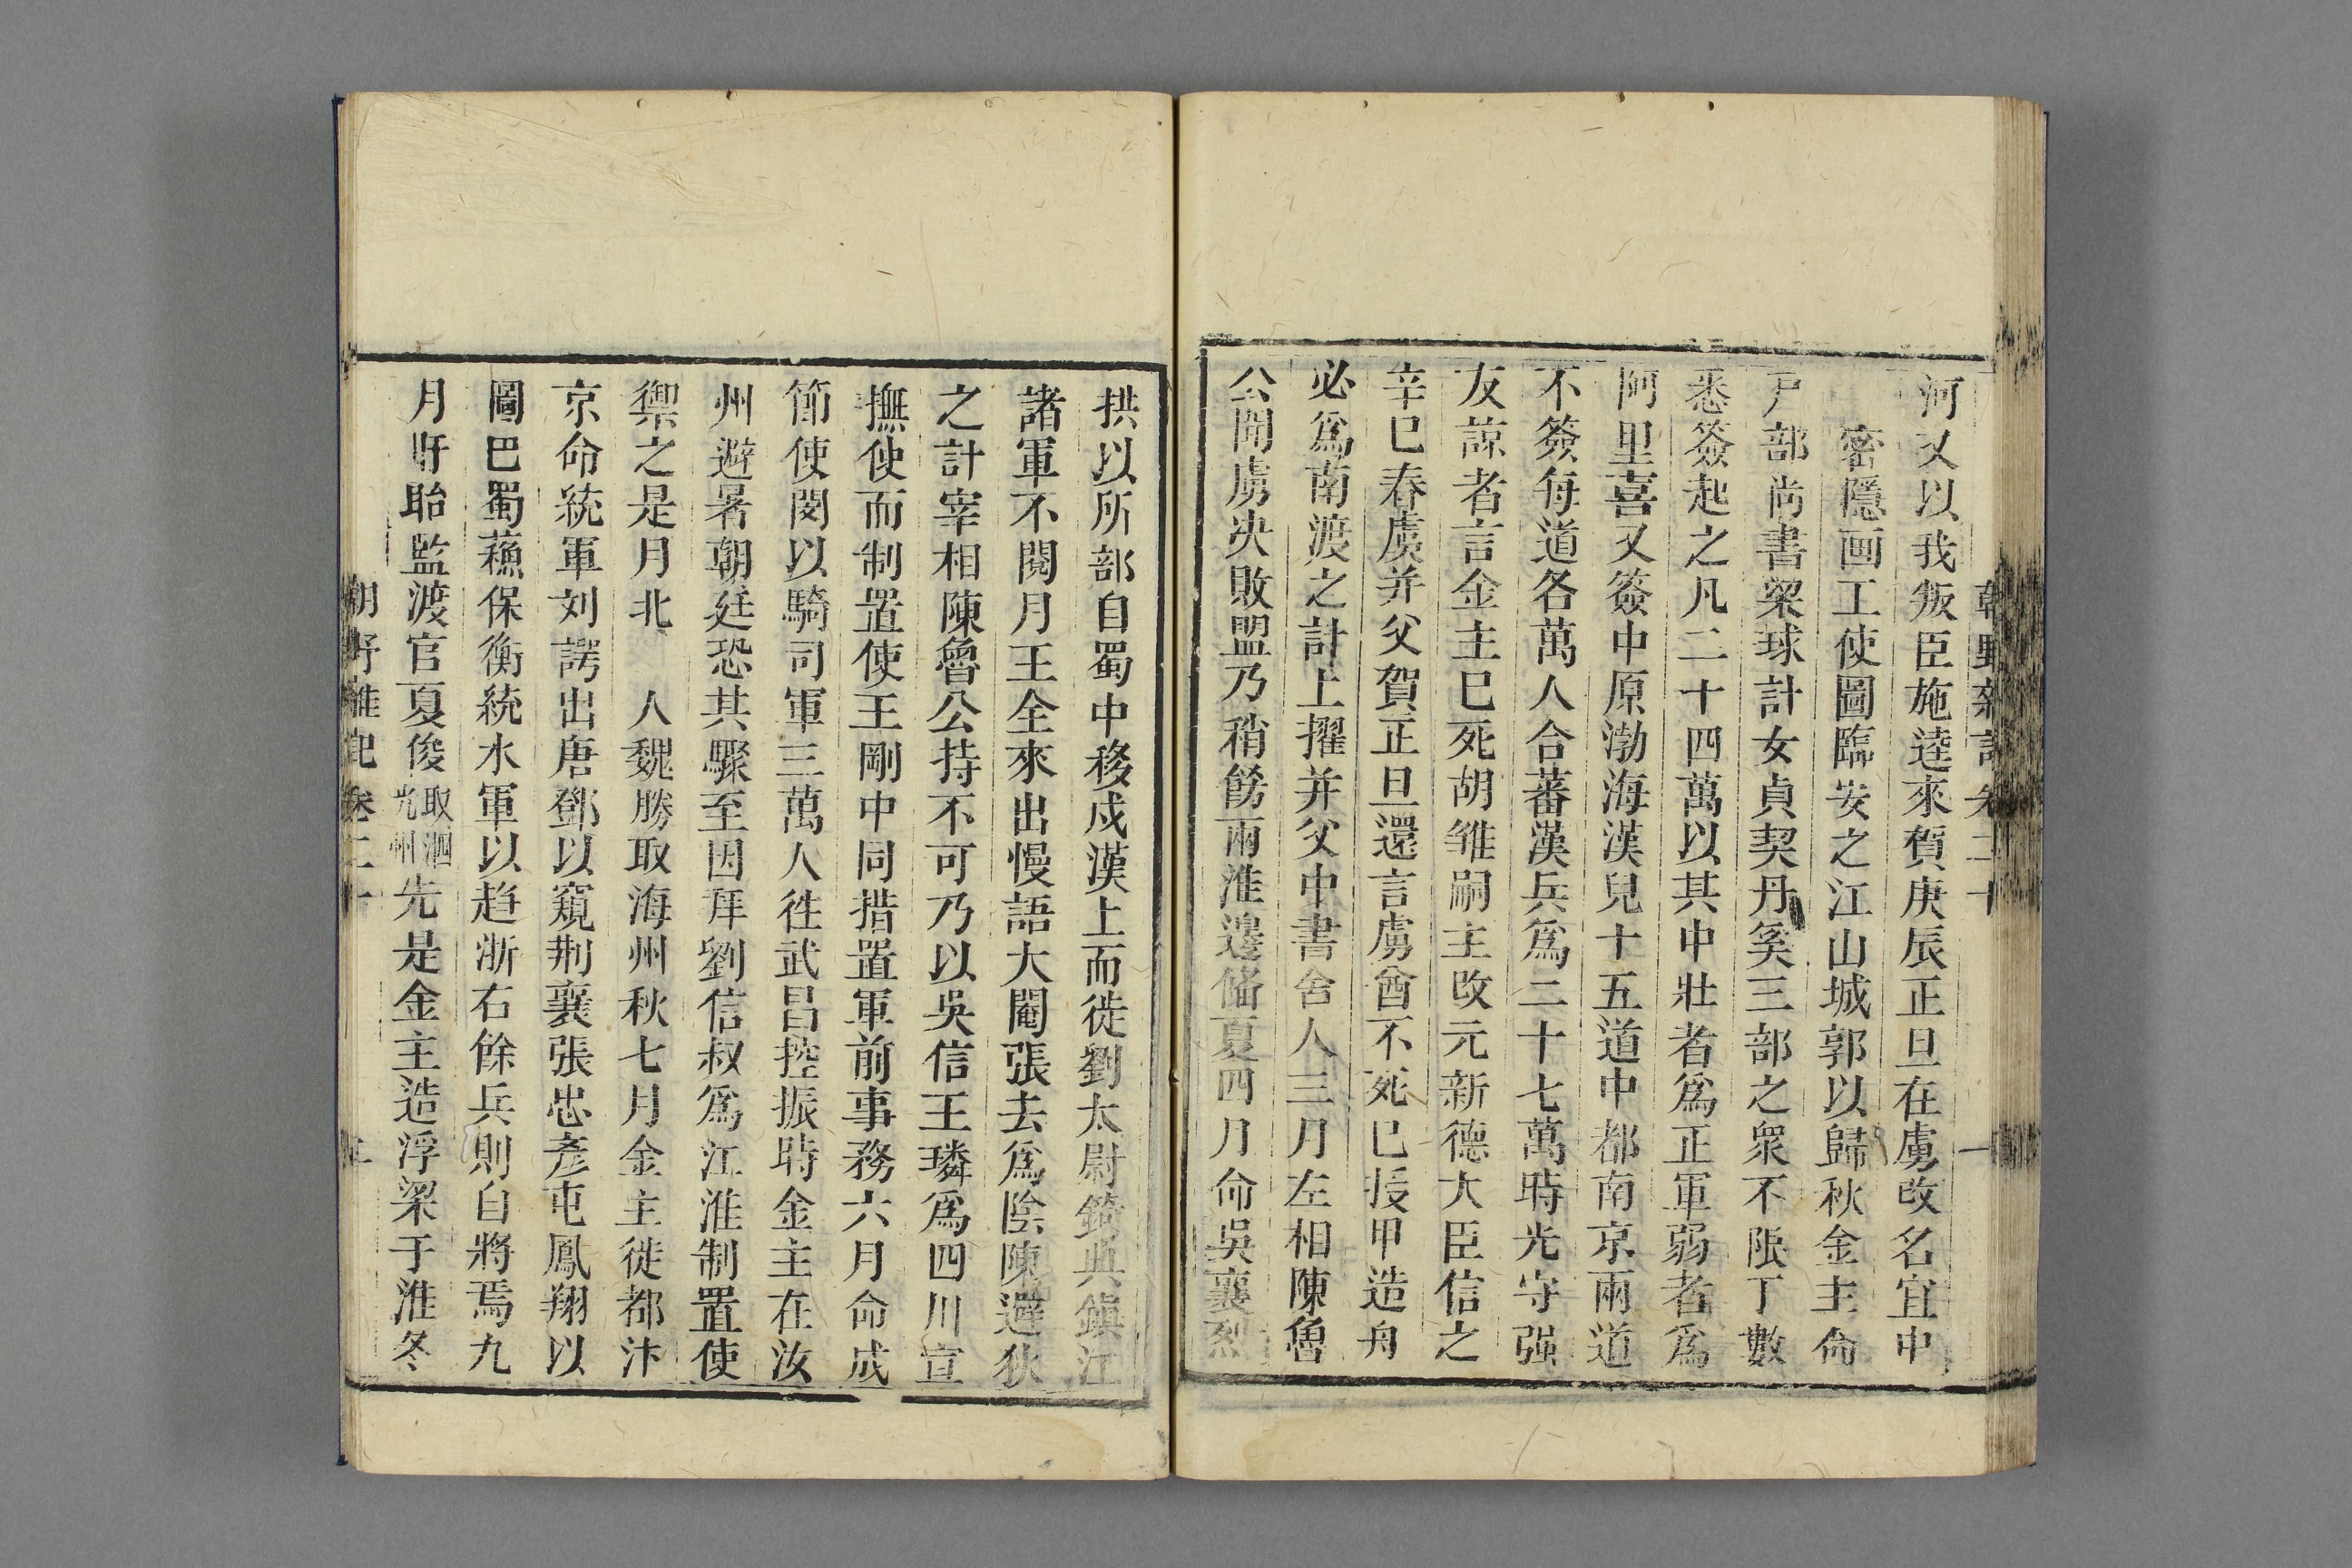 朝野雜記卷二十
一
河又以我叛臣施逵來賀庚辰正旦在虜改名宜中
密隱画工使圖臨安之江山城郭以歸秋金主命
戸部尚書梁球計女貞契丹奚三部之衆不限丁數
悉簽起之凡二十四萬以其中壯者爲正軍弱者爲
阿里喜又簽中原渤海漢兒十五道中都南京兩道
不簽每道各萬人合蕃漢兵爲二十七萬時光守强
友諒者言金主巳死胡雏嗣主改元新德大臣信之
辛巳春虞并父賀正旦還言虜酋不死巳授甲造舟
必爲南渡之計上擢并父中書舍人三月左相陳魯
公聞虜决敗盟乃稍飭兩淮邊俻夏四月命吳襄烈
拱以所部自蜀中移戍漢上而徙劉太尉錡典鎭江
諸軍不閱月王全來出慢語大閹張去爲陰陳避狄
之計宰相陳魯公持不可乃以吳信王璘爲四川宣
撫使而制置使王剛中同措置軍前事務六月命成
節使閔以騎司軍三萬人徃武昌控振時金主在汝
州避暑朝廷恐其驟至因拜劉信叔爲江淮制置使
禦之是月北 人魏勝取海州秋七月金主徙都汴
京命統軍刘諤出唐鄧以窺荆襄張忠彥屯鳳翔以
圖巴蜀蘓保衡統水軍以趋浙右餘兵則自將焉九
月盱眙監渡官夏俊取泗光州先是金主造浮梁于淮冬
朝野雜記卷二十